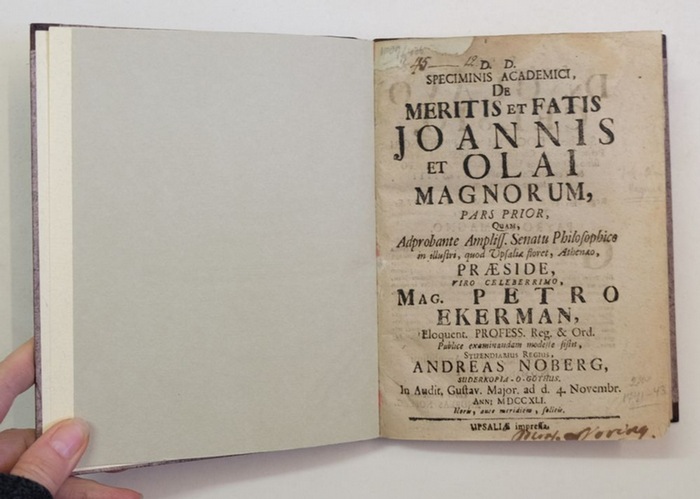 45 — 12
D. D.
SPECIMINIS ACADEMICI,
DE
MERITIS ET FATIS
JOANNIS
ET OLAI
MAGNORUM,
PARS PRIOR,
QUAM,
Adprobante Ampliss. Senatu Philosophico
in illustri, quod Upsaliæ floret, Athenæo,
PRÆSIDE,
VIRO CELEBERRIMO,
MAG. PETRO
EKERMAN,
Eloquent. PROFESS. Reg. & Ord.
Publice examinandam modeste sistit,
STIPENDIARIUS REGIUS,
ANDREAS NOBERG,
SUDERKOPIA-O-GOTHUS.
In Audit. Gustav. Major. ad d. 4. Novembr.
ANNI MDCCXLI.
Horis, ante meridiem, solitis.
UPSALIÆ impressa.